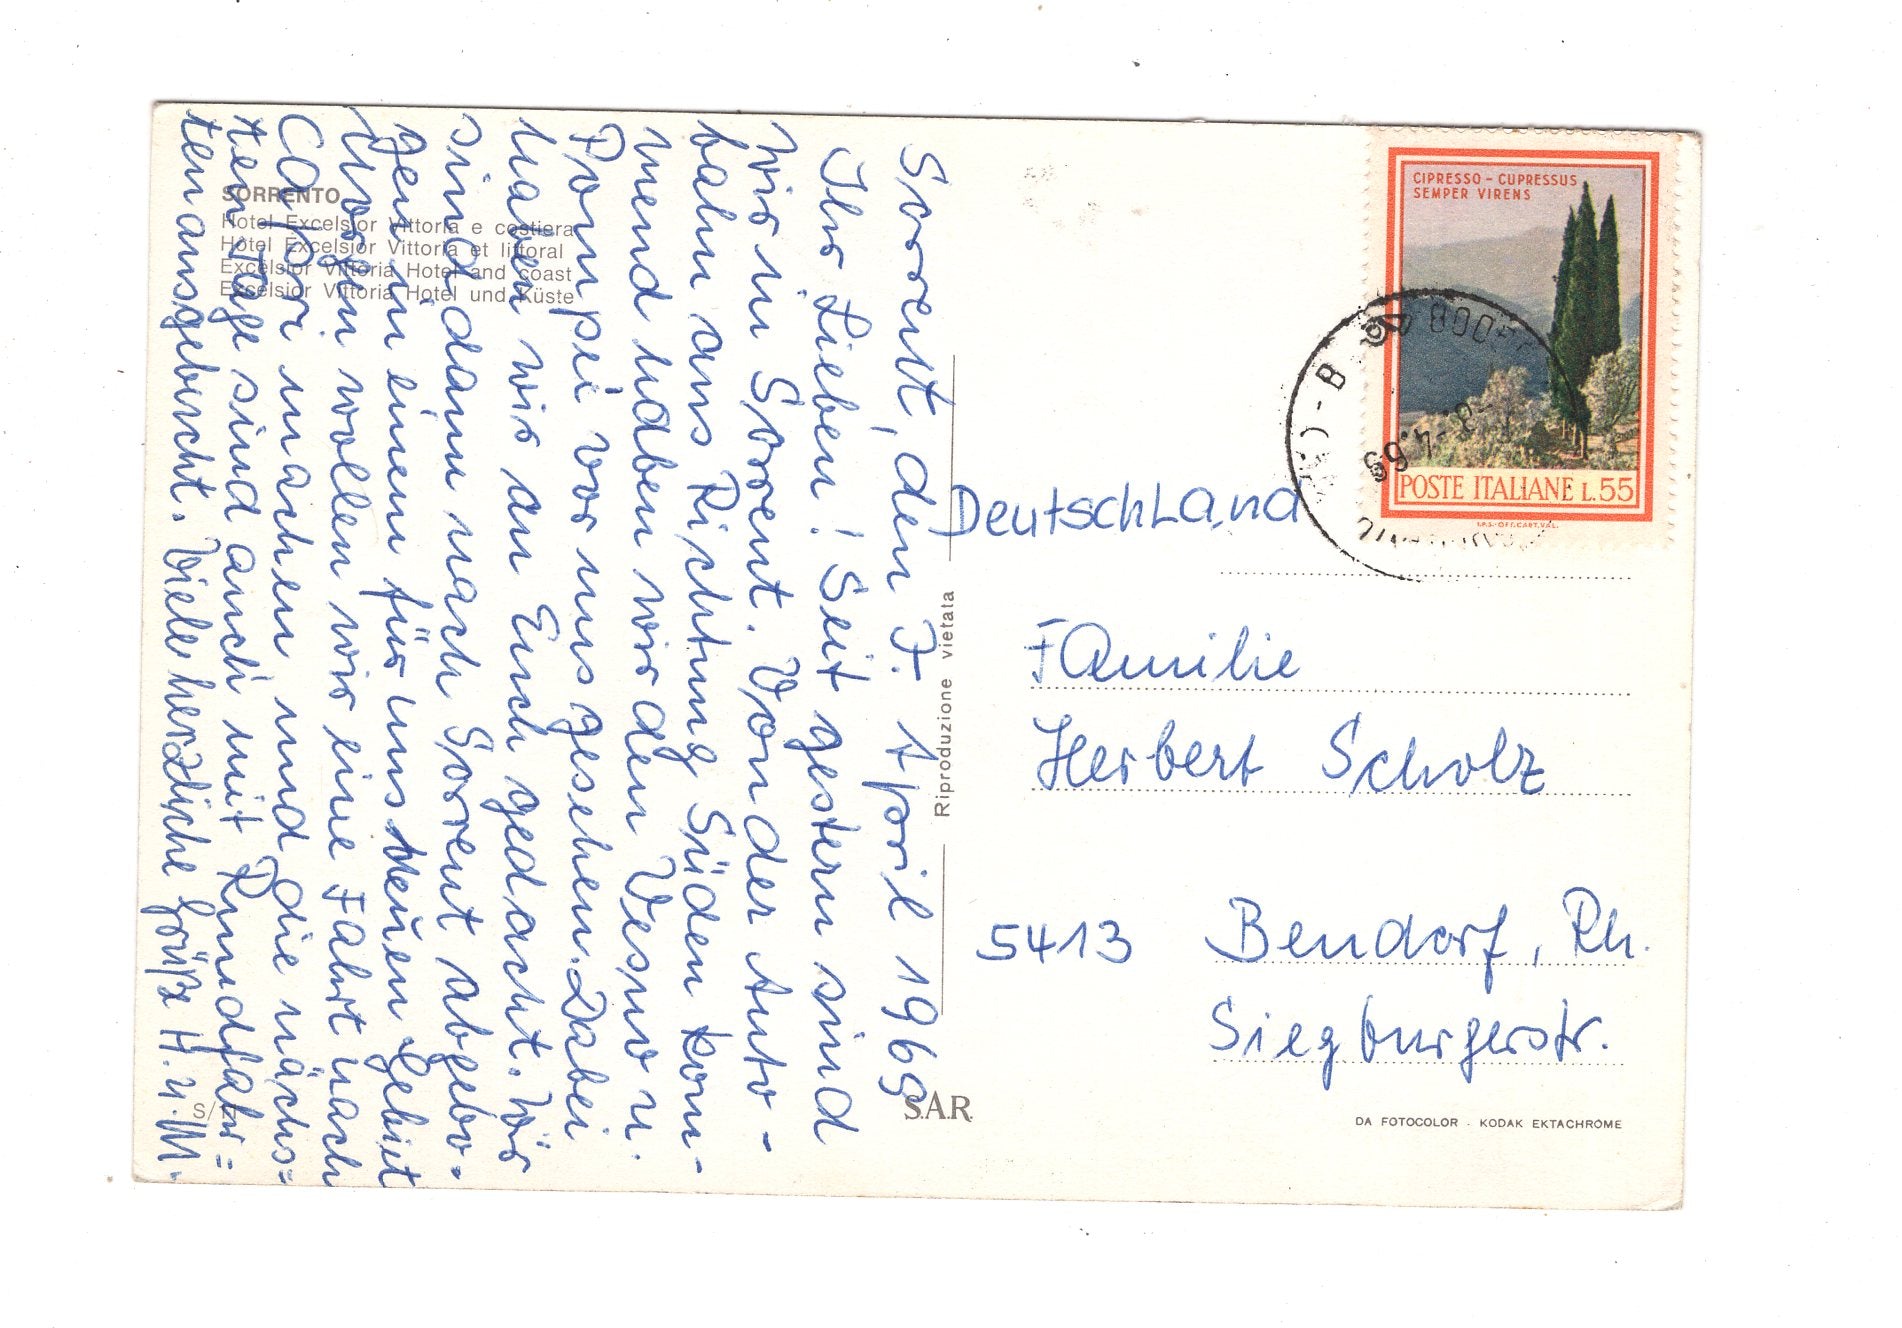 SORRENTO
Hotel Excelsior Vittoria e costiera
Hôtel Excelsior Vittoria et littoral
Excelsior Vittoria Hotel and coast
Excelsior Vittoria Hotel und Küste
Sorrent, den 7. April 1969
Ihr Lieben! Seit gestern sind
wir in Sorrent. Von der Auto-
bahn aus Richtung Süden kom-
mend haben wir den Vesuv u.
Pompei vor uns gesehen. Dabei
haben wir an Euch gedacht. Wir
sind dann nach Sorrent abgebo-
gen in einem für uns neuen Gebiet
Morgen wollen wir eine Fahrt nach
Capri machen und die nächs=
ten Tage sind auch mit Rundfahr=
ten ausgebucht. Viele herzliche Grüße H. u. M.
Riproduzione vietata
S.A.R.
S/
CIPRESSO - CUPRESSUS
SEMPER VIRENS
POSTE ITALIANE L.55
I.P.S.-OFF.CART.VAL.
Deutschland
Familie
Herbert Scholz
5413 Bendorf, Rh.
Siegburgerstr.
DA FOTOCOLOR - KODAK EKTACHROME